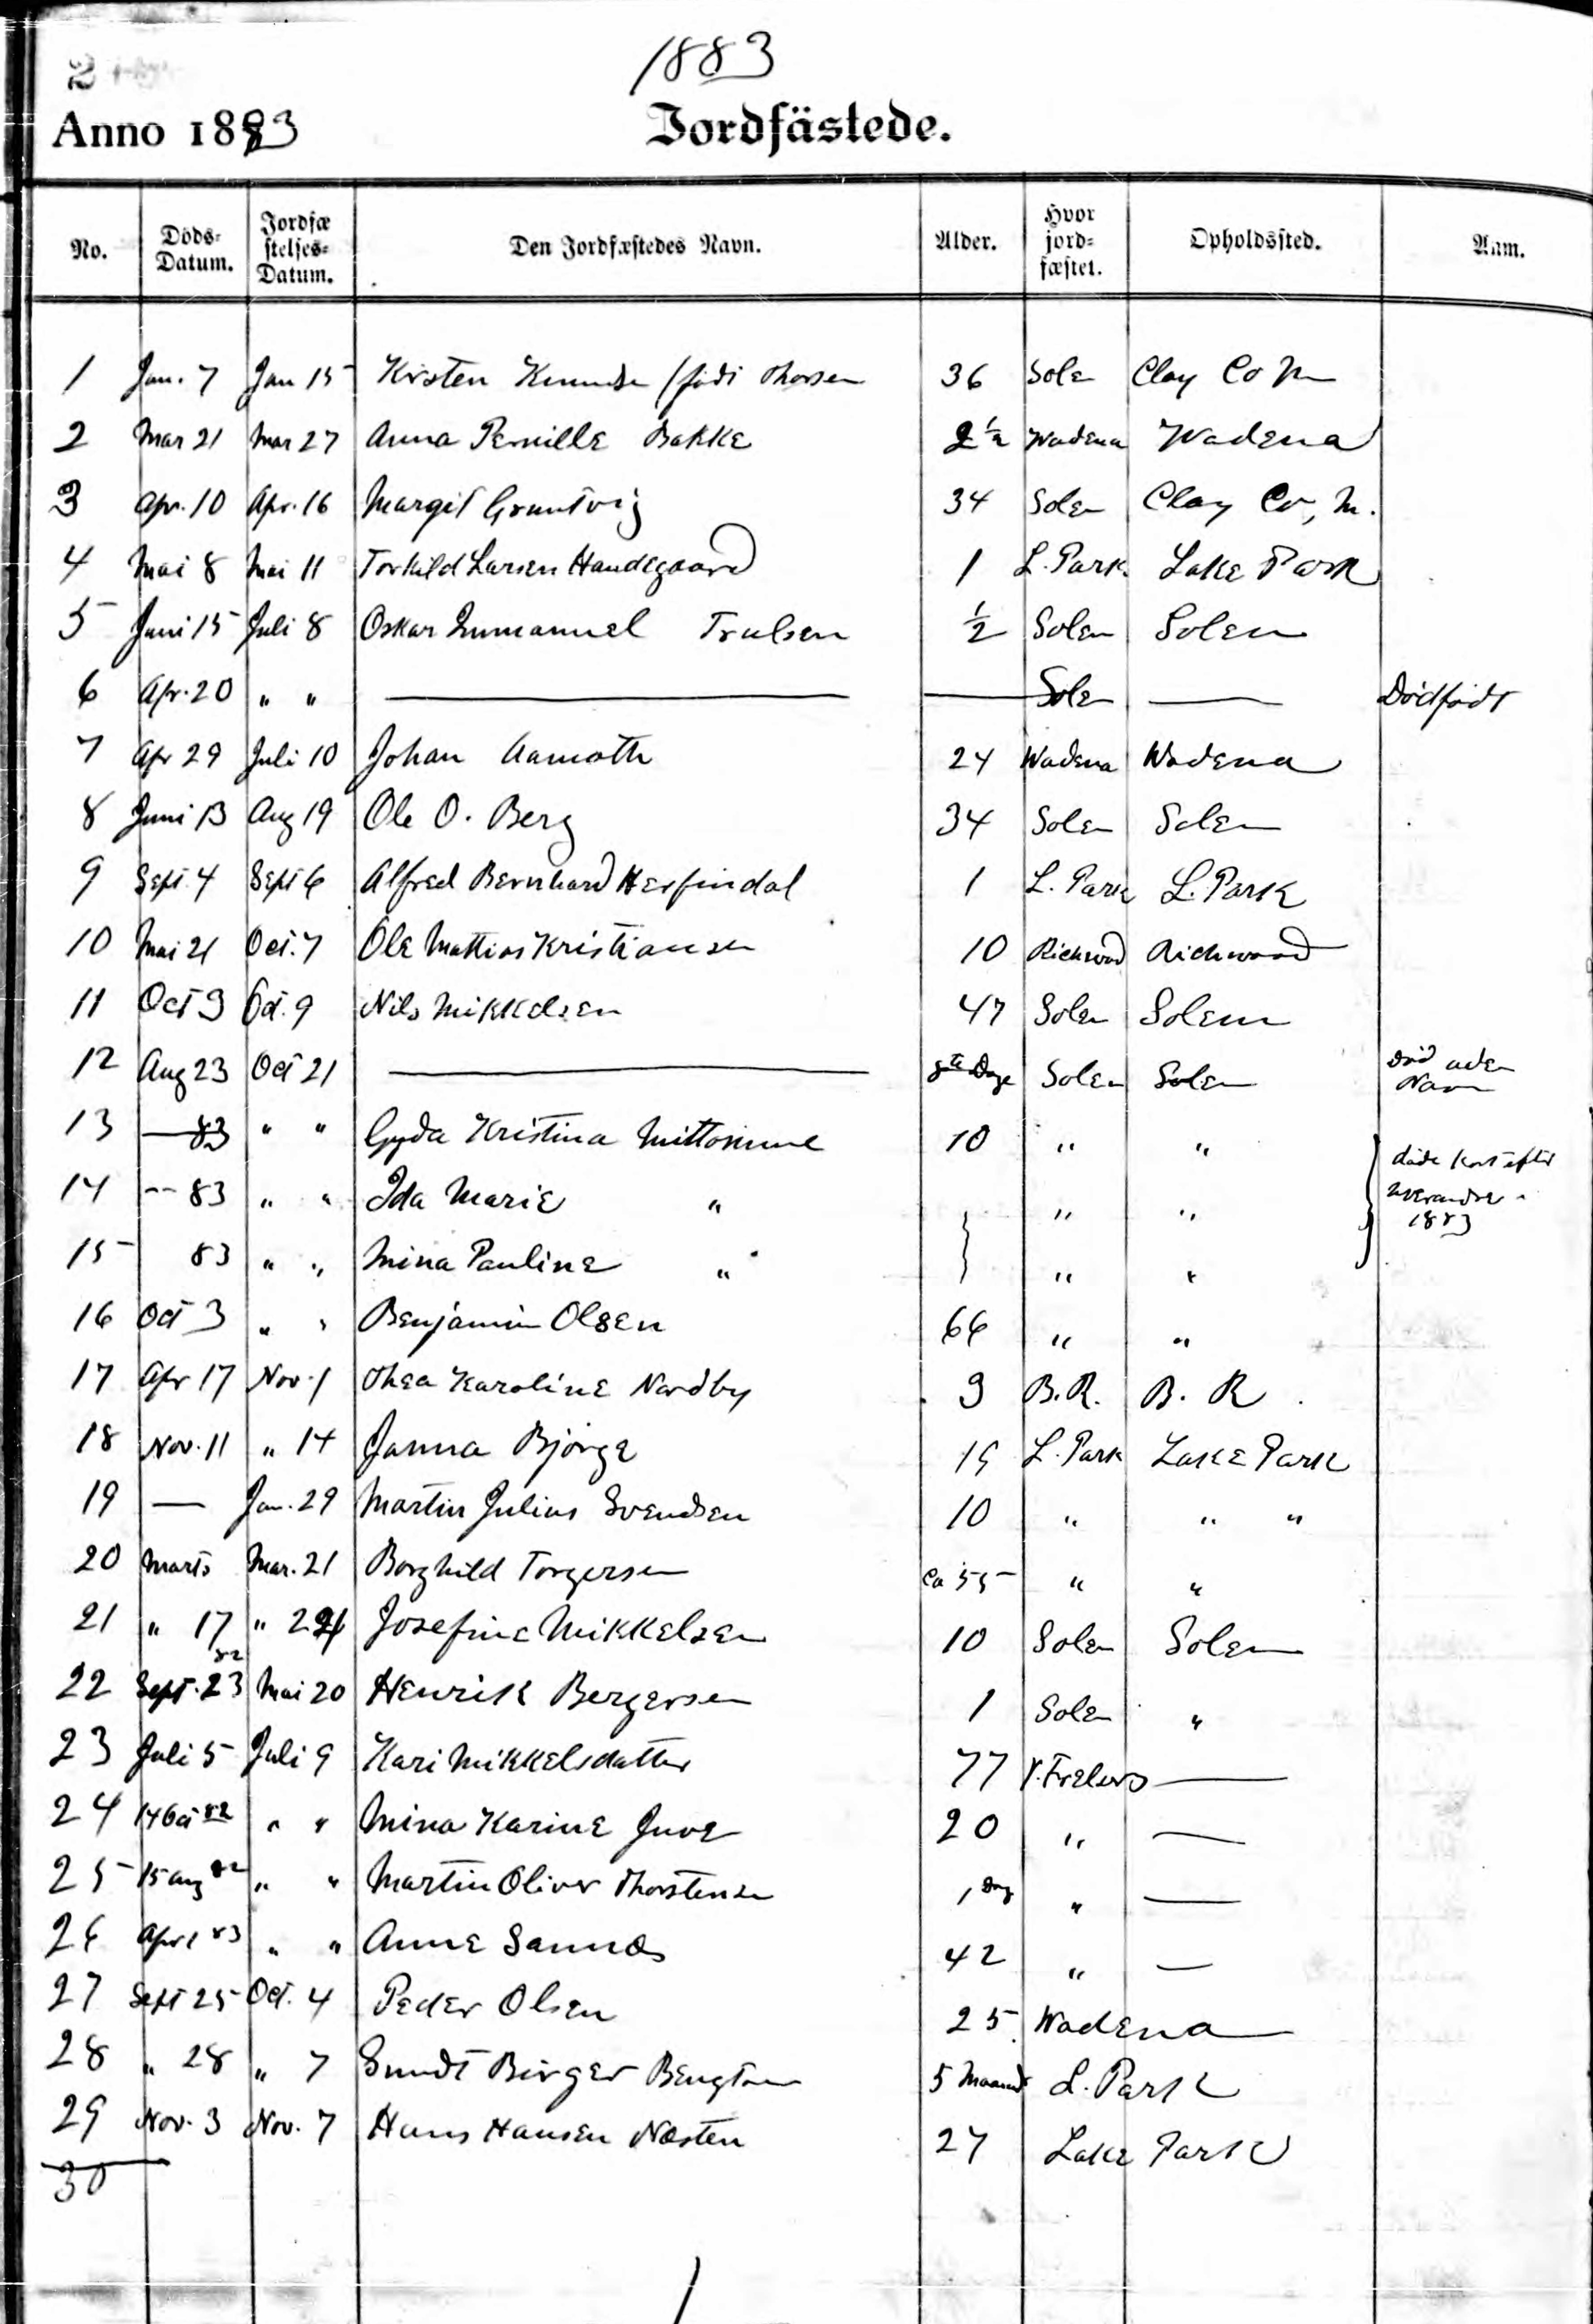 2
1883
Anno 1883
Jordfästede.
No. Döds-Datum. Jordfæstelses-Datum. Den Jordfæstedes Navn. Alder. Hvor jord-fæstet. Opholdssted. Anm.
1 Jan. 7 Jan 15 Kirsten Knudsen (födt Thorsen 36 Solem Clay Co M
2 Mar 21 Mar 27 Anna Pernille Bakke 2 1/2 Wadena Wadena
3 Apr. 10 Apr. 16 Margit Gruntvig 34 Solem Clay Co, M.
4 Mai 8 Mai 11 Torkild Larsen Handegaard 1 L. Park. Lake Park
5 Juni 15 Juli 8 Oskar Immanuel Trulsen 1/2 Solem Solem
6 Apr. 20 " " — — Solem — Dödfödt
7 Apr 29 Juli 10 Johan Aamoth 24 Wadena Wadena
8 Juni 13 Aug 19 Ole O. Berg 34 Solem Solem
9 Sept. 4 Sept 6 Alfred Bernhard Herfindal 1 L. Park L. Park
10 Mai 21 Oct. 7 Ole Mattias Kristiansen 10 Richwood Richwood
11 Oct 3 Oct. 9 Nils Mikkelsen 47 Solem Solem
12 Aug 23 Oct 21 — Dage Solem Solem Död uden Navn
13 — 83 " " Gyda Kristina 10 " "
14 -- 83 " " Ida Marie " " " döde kort efter hverandre 1883
15 83 " " Mina Pauline " " "
16 Oct 3 " " Benjamin Olsen 66 " "
17 Apr 17 Nov. 1 Thea Karoline Nordby 3 B.R. B. R.
18 Nov. 11 " 14 Janna Bjorge 19 L. Park Lake Park
19 — Jan. 29 Martin Julius Svendsen 10 " " "
20 Marts Mar. 21 Borghild Torgersen Ca 55 " "
21 " 17 " 24 Josefine Mikkelsen 10 Solem Solem
22 Sept. 23 82 Mai 20 Henrik Bergersen 1 Solem "
23 Juli 5 Juli 9 Kari Mikkelsdatter 77 —
24 14 Oct 82 " " Mina Karine Juve 20 " —
25 15 Aug 82 " " Martin Oliver Thorstensen 1 Dag " —
26 Apr 1 83 " " Anne Sannes 42 " —
27 Sept 25 Oct. 4 Peder Olsen 25 Wadena
28 " 28 " 7 Sundt Birger Bengtson 5 Maaned L. Park
29 Nov. 3 Nov. 7 Hans Hansen Næsten 27 Lake Park
30